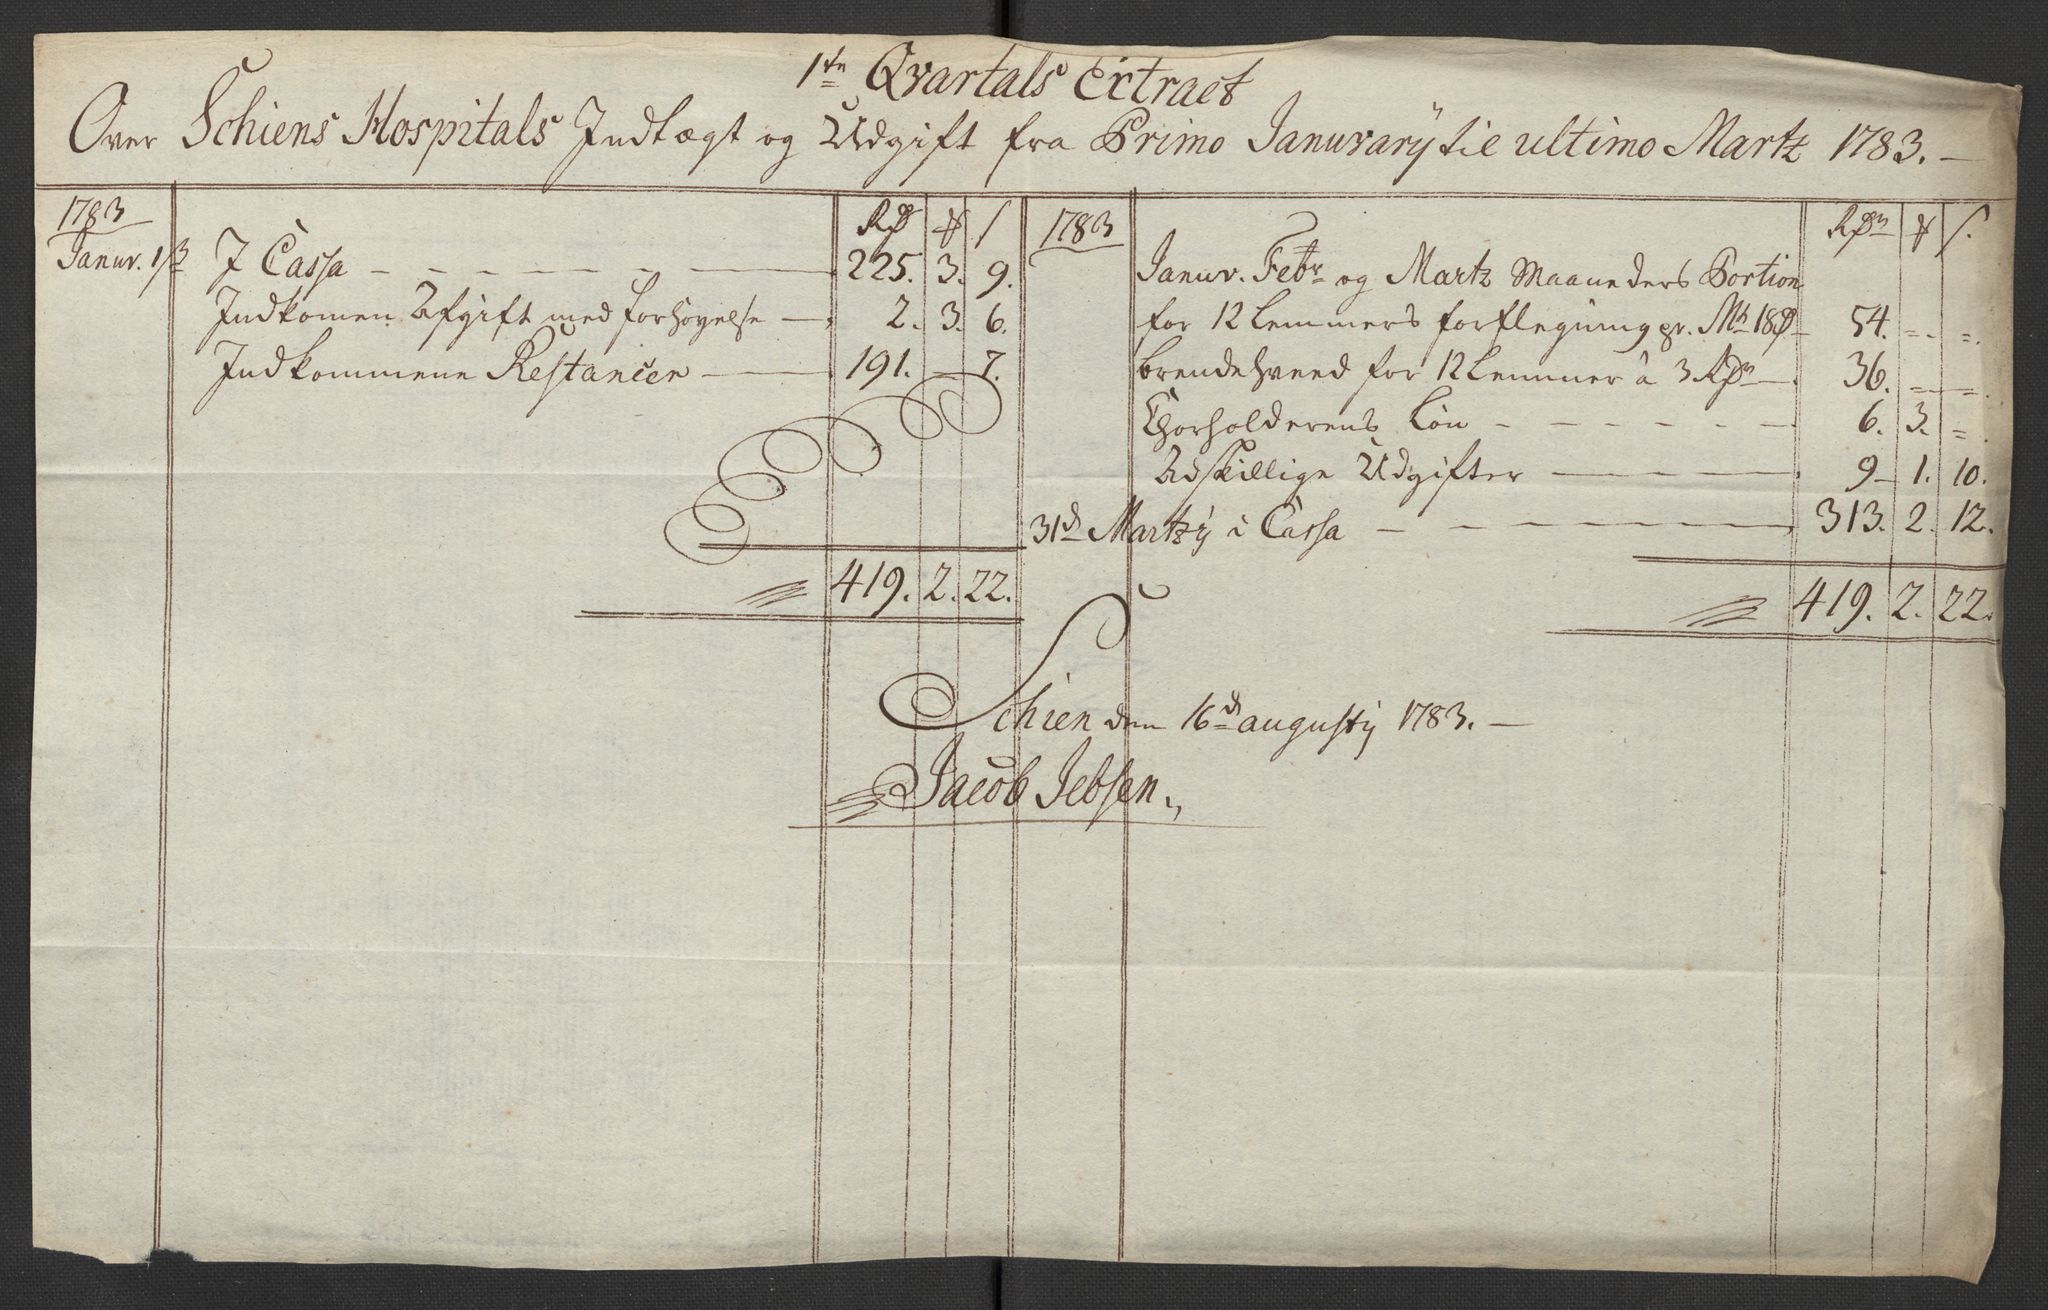 1te Qvartals Extract
Over Schiens Hospitals Indtægt og Udgift fra Primo Januvarÿ til ultimo Martz 1783.
1783 Rd ß
Januv. 1/3 J Cassa 225. 3. 9.
Indkomen Afgift med forhøyelse 2. 3. 6.
Indkommene Restancer 191. — 7.
419. 2. 22.
1783 Rdr ß.
Januv. Febr og Martz Maaneders Portion
for 12 Lemmers forflegning pr. Md 18 Rd 54. = =
brendehveed for 12 Lemmer a 3 Rdr 36. = =
Chorholderens Løn 6. 3. =
Adskillige Udgifter 9 1. 10.
31d Martzÿ i Cassa 313. 2. 12.
419. 2. 22.
Schien den 16d augustÿ 1783.
Jacob Jebsen